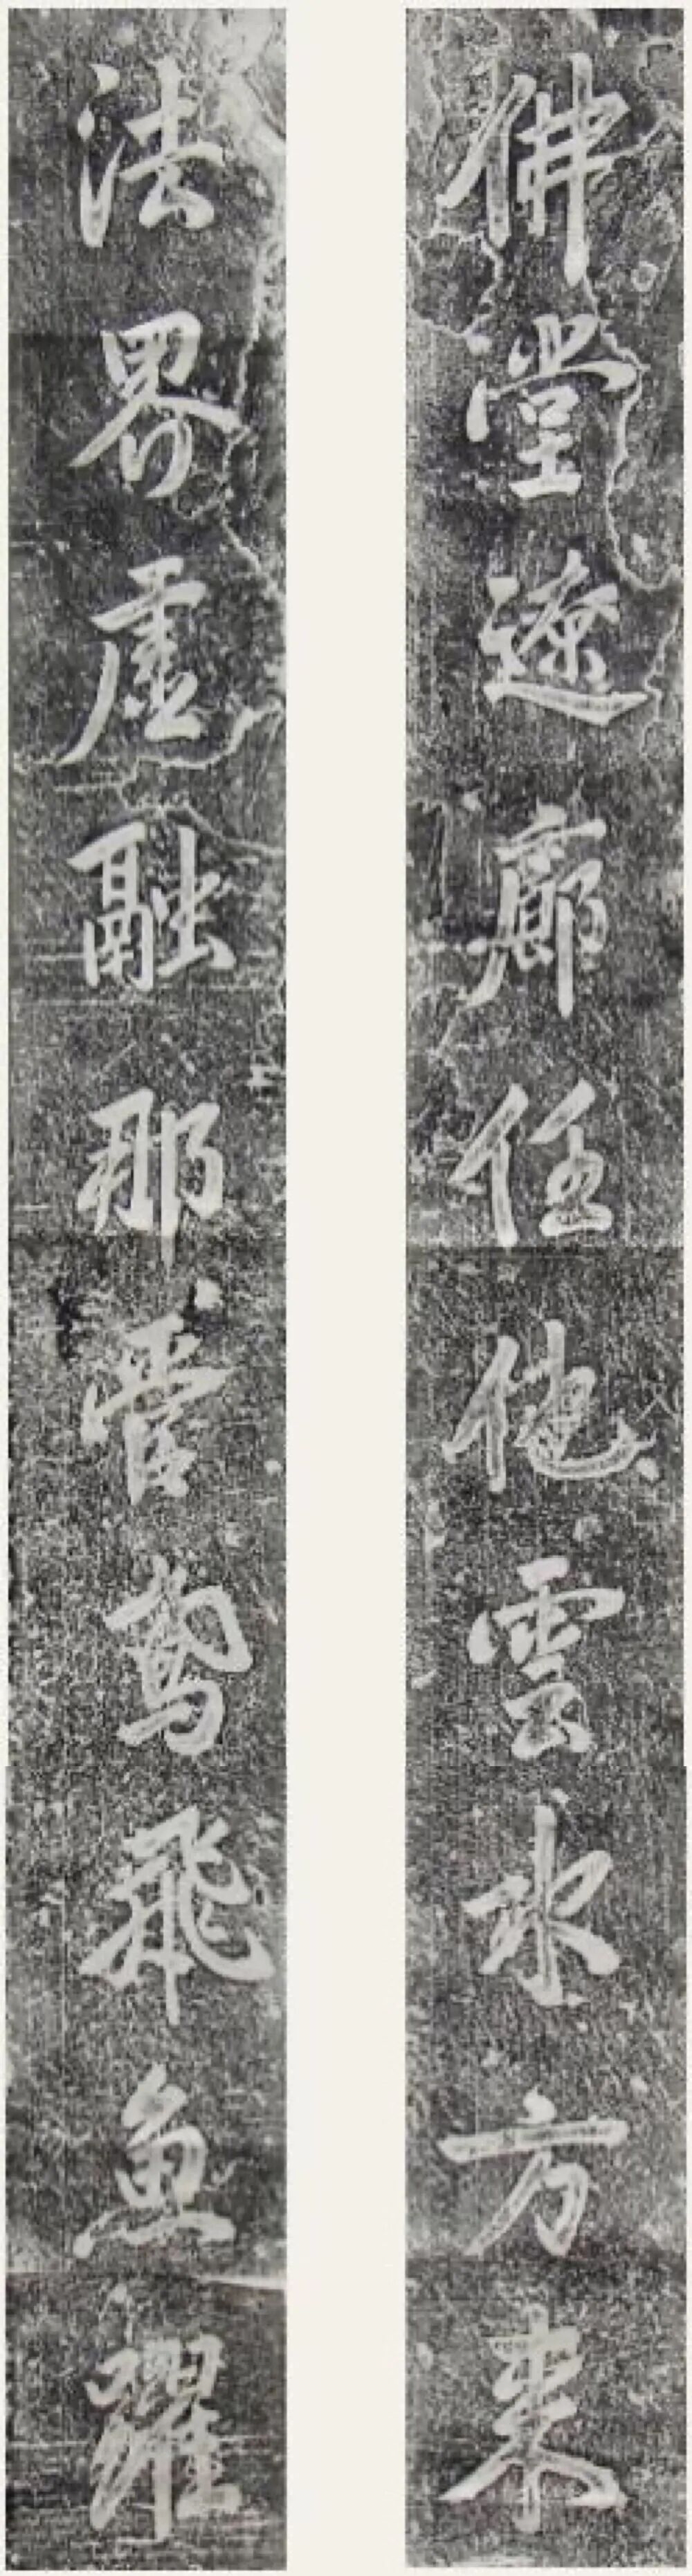 佛堂遼廓任他雲水方來
法界虛融那管鳶飛魚躍